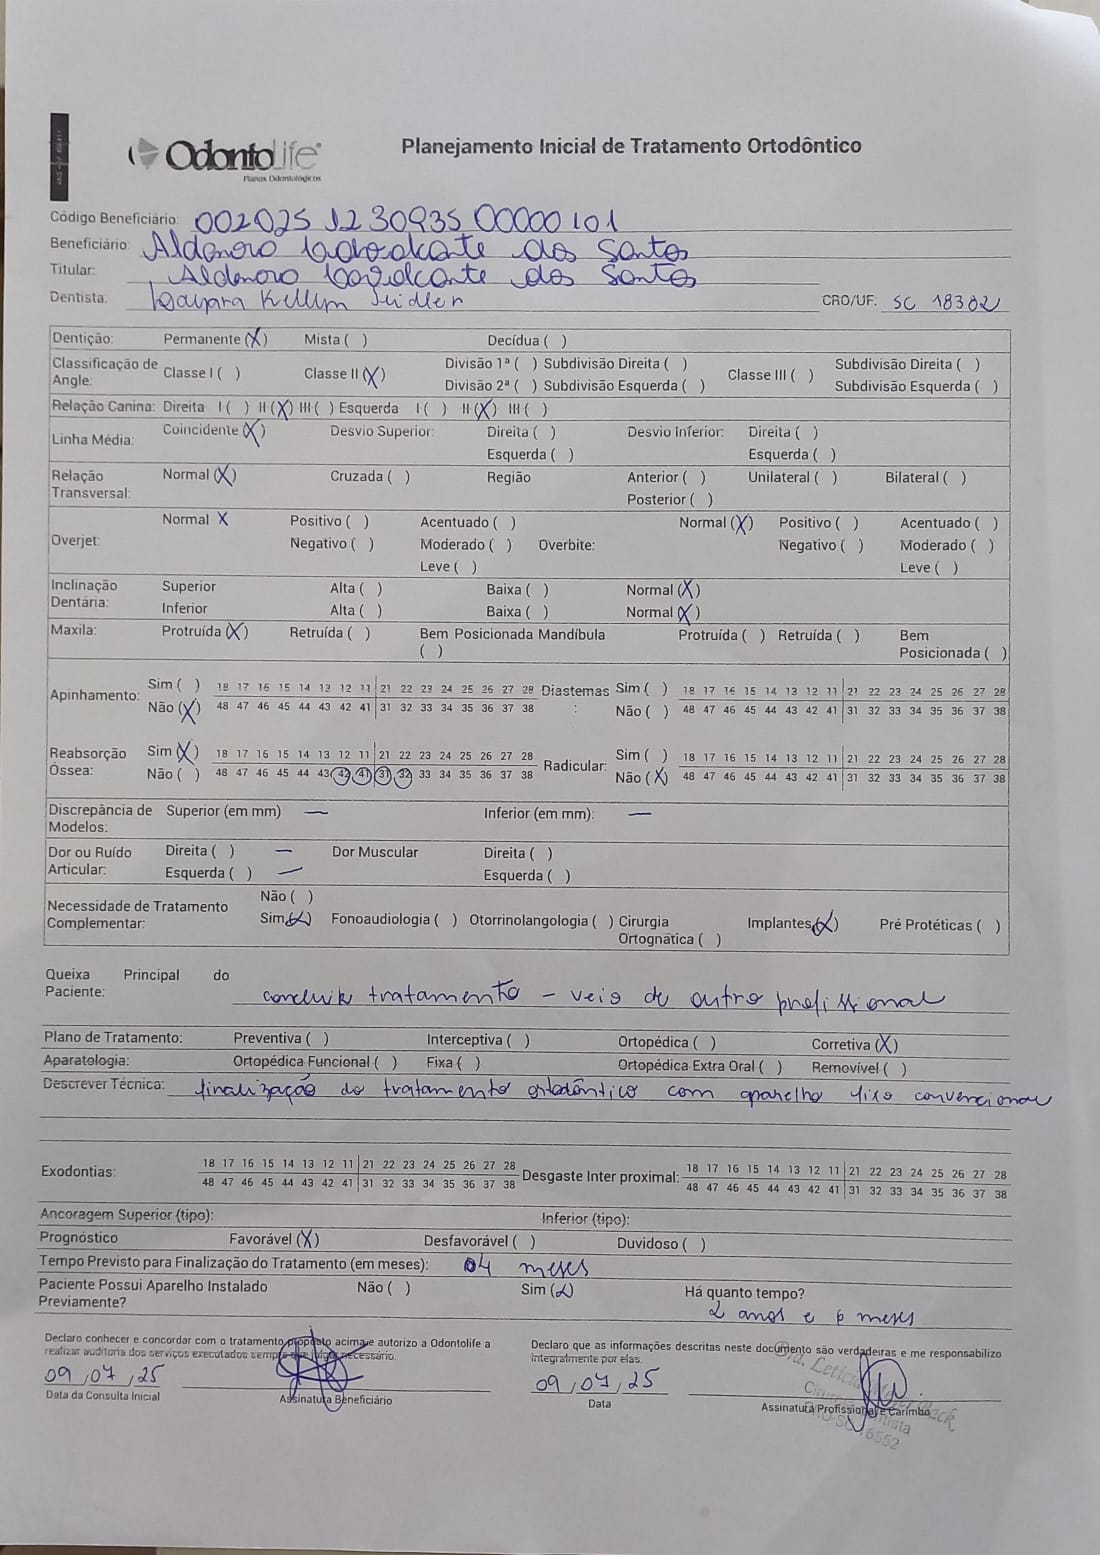 OdontoLife
Planos Odontológicos
Planejamento Inicial de Tratamento Ortodôntico
Código Beneficiário: 002025 1230935 00000101
Beneficiário: dos Santos
Titular: dos Santos
Dentista: Kellyn Seidler CRO/UF: SC 18302
Dentição: Permanente (X) Mista ( ) Decídua ( )
Classificação de Angle: Classe I ( ) Classe II (X) Divisão 1ª ( ) Subdivisão Direita ( ) Classe III ( ) Subdivisão Direita ( )
Divisão 2ª ( ) Subdivisão Esquerda ( ) Subdivisão Esquerda ( )
Relação Canina: Direita I ( ) II (X) III ( ) Esquerda I ( ) II (X) III ( )
Linha Média: Coincidente (X) Desvio Superior: Direita ( ) Desvio Inferior: Direita ( )
Esquerda ( ) Esquerda ( )
Relação Transversal: Normal (X) Cruzada ( ) Região Anterior ( ) Unilateral ( ) Bilateral ( )
Posterior ( )
Overjet: Normal X Positivo ( ) Acentuado ( ) Overbite: Normal (X) Positivo ( ) Acentuado ( )
Negativo ( ) Moderado ( ) Negativo ( ) Moderado ( )
Leve ( ) Leve ( )
Inclinação Dentária: Superior Alta ( ) Baixa ( ) Normal (X)
Inferior Alta ( ) Baixa ( ) Normal (X)
Maxila: Protruída (X) Retruída ( ) Bem Posicionada ( ) Mandíbula Protruída ( ) Retruída ( ) Bem Posicionada ( )
Apinhamento: Sim ( ) 18 17 16 15 14 13 12 11 21 22 23 24 25 26 27 28 Diastemas: Sim ( ) 18 17 16 15 14 13 12 11 21 22 23 24 25 26 27 28
Não (X) 48 47 46 45 44 43 42 41 31 32 33 34 35 36 37 38 Não ( ) 48 47 46 45 44 43 42 41 31 32 33 34 35 36 37 38
Reabsorção Óssea: Sim (X) 18 17 16 15 14 13 12 11 21 22 23 24 25 26 27 28 Radicular: Sim ( ) 18 17 16 15 14 13 12 11 21 22 23 24 25 26 27 28
Não ( ) 48 47 46 45 44 43 42 41 31 32 33 34 35 36 37 38 Não (X) 48 47 46 45 44 43 42 41 31 32 33 34 35 36 37 38
Discrepância de Modelos: Superior (em mm) — Inferior (em mm): —
Dor ou Ruído Articular: Direita ( ) — Dor Muscular Direita ( )
Esquerda ( ) — Esquerda ( )
Necessidade de Tratamento Complementar: Não ( )
Sim (X) Fonoaudiologia ( ) Otorrinolangologia ( ) Cirurgia Ortognática ( ) Implantes (X) Pré Protéticas ( )
Queixa Principal do Paciente: concluir tratamento - veio de outro profissional
Plano de Tratamento: Preventiva ( ) Interceptiva ( ) Ortopédica ( ) Corretiva (X)
Aparatologia: Ortopédica Funcional ( ) Fixa ( ) Ortopédica Extra Oral ( ) Removível ( )
Descrever Técnica: finalização do tratamento ortodôntico com aparelho fixo convencional
Exodontias: 18 17 16 15 14 13 12 11 21 22 23 24 25 26 27 28 Desgaste Inter proximal: 18 17 16 15 14 13 12 11 21 22 23 24 25 26 27 28
48 47 46 45 44 43 42 41 31 32 33 34 35 36 37 38 48 47 46 45 44 43 42 41 31 32 33 34 35 36 37 38
Ancoragem Superior (tipo): Inferior (tipo):
Prognóstico Favorável (X) Desfavorável ( ) Duvidoso ( )
Tempo Previsto para Finalização do Tratamento (em meses): 04 meses
Paciente Possui Aparelho Instalado Previamente? Não ( ) Sim (X) Há quanto tempo?
2 anos e 6 meses
Declaro conhecer e concordar com o tratamento proposto acima e autorizo a Odontolife a
realizar auditoria dos serviços executados sempre que julgar necessário.
Declaro que as informações descritas neste documento são verdadeiras e me responsabilizo
integralmente por elas.
09,07,25
Data da Consulta Inicial
Assinatura Beneficiário
09,07,25
Data
Assinatura Profissional e Carimbo
Dra. Letícia
CRO-SC 16552